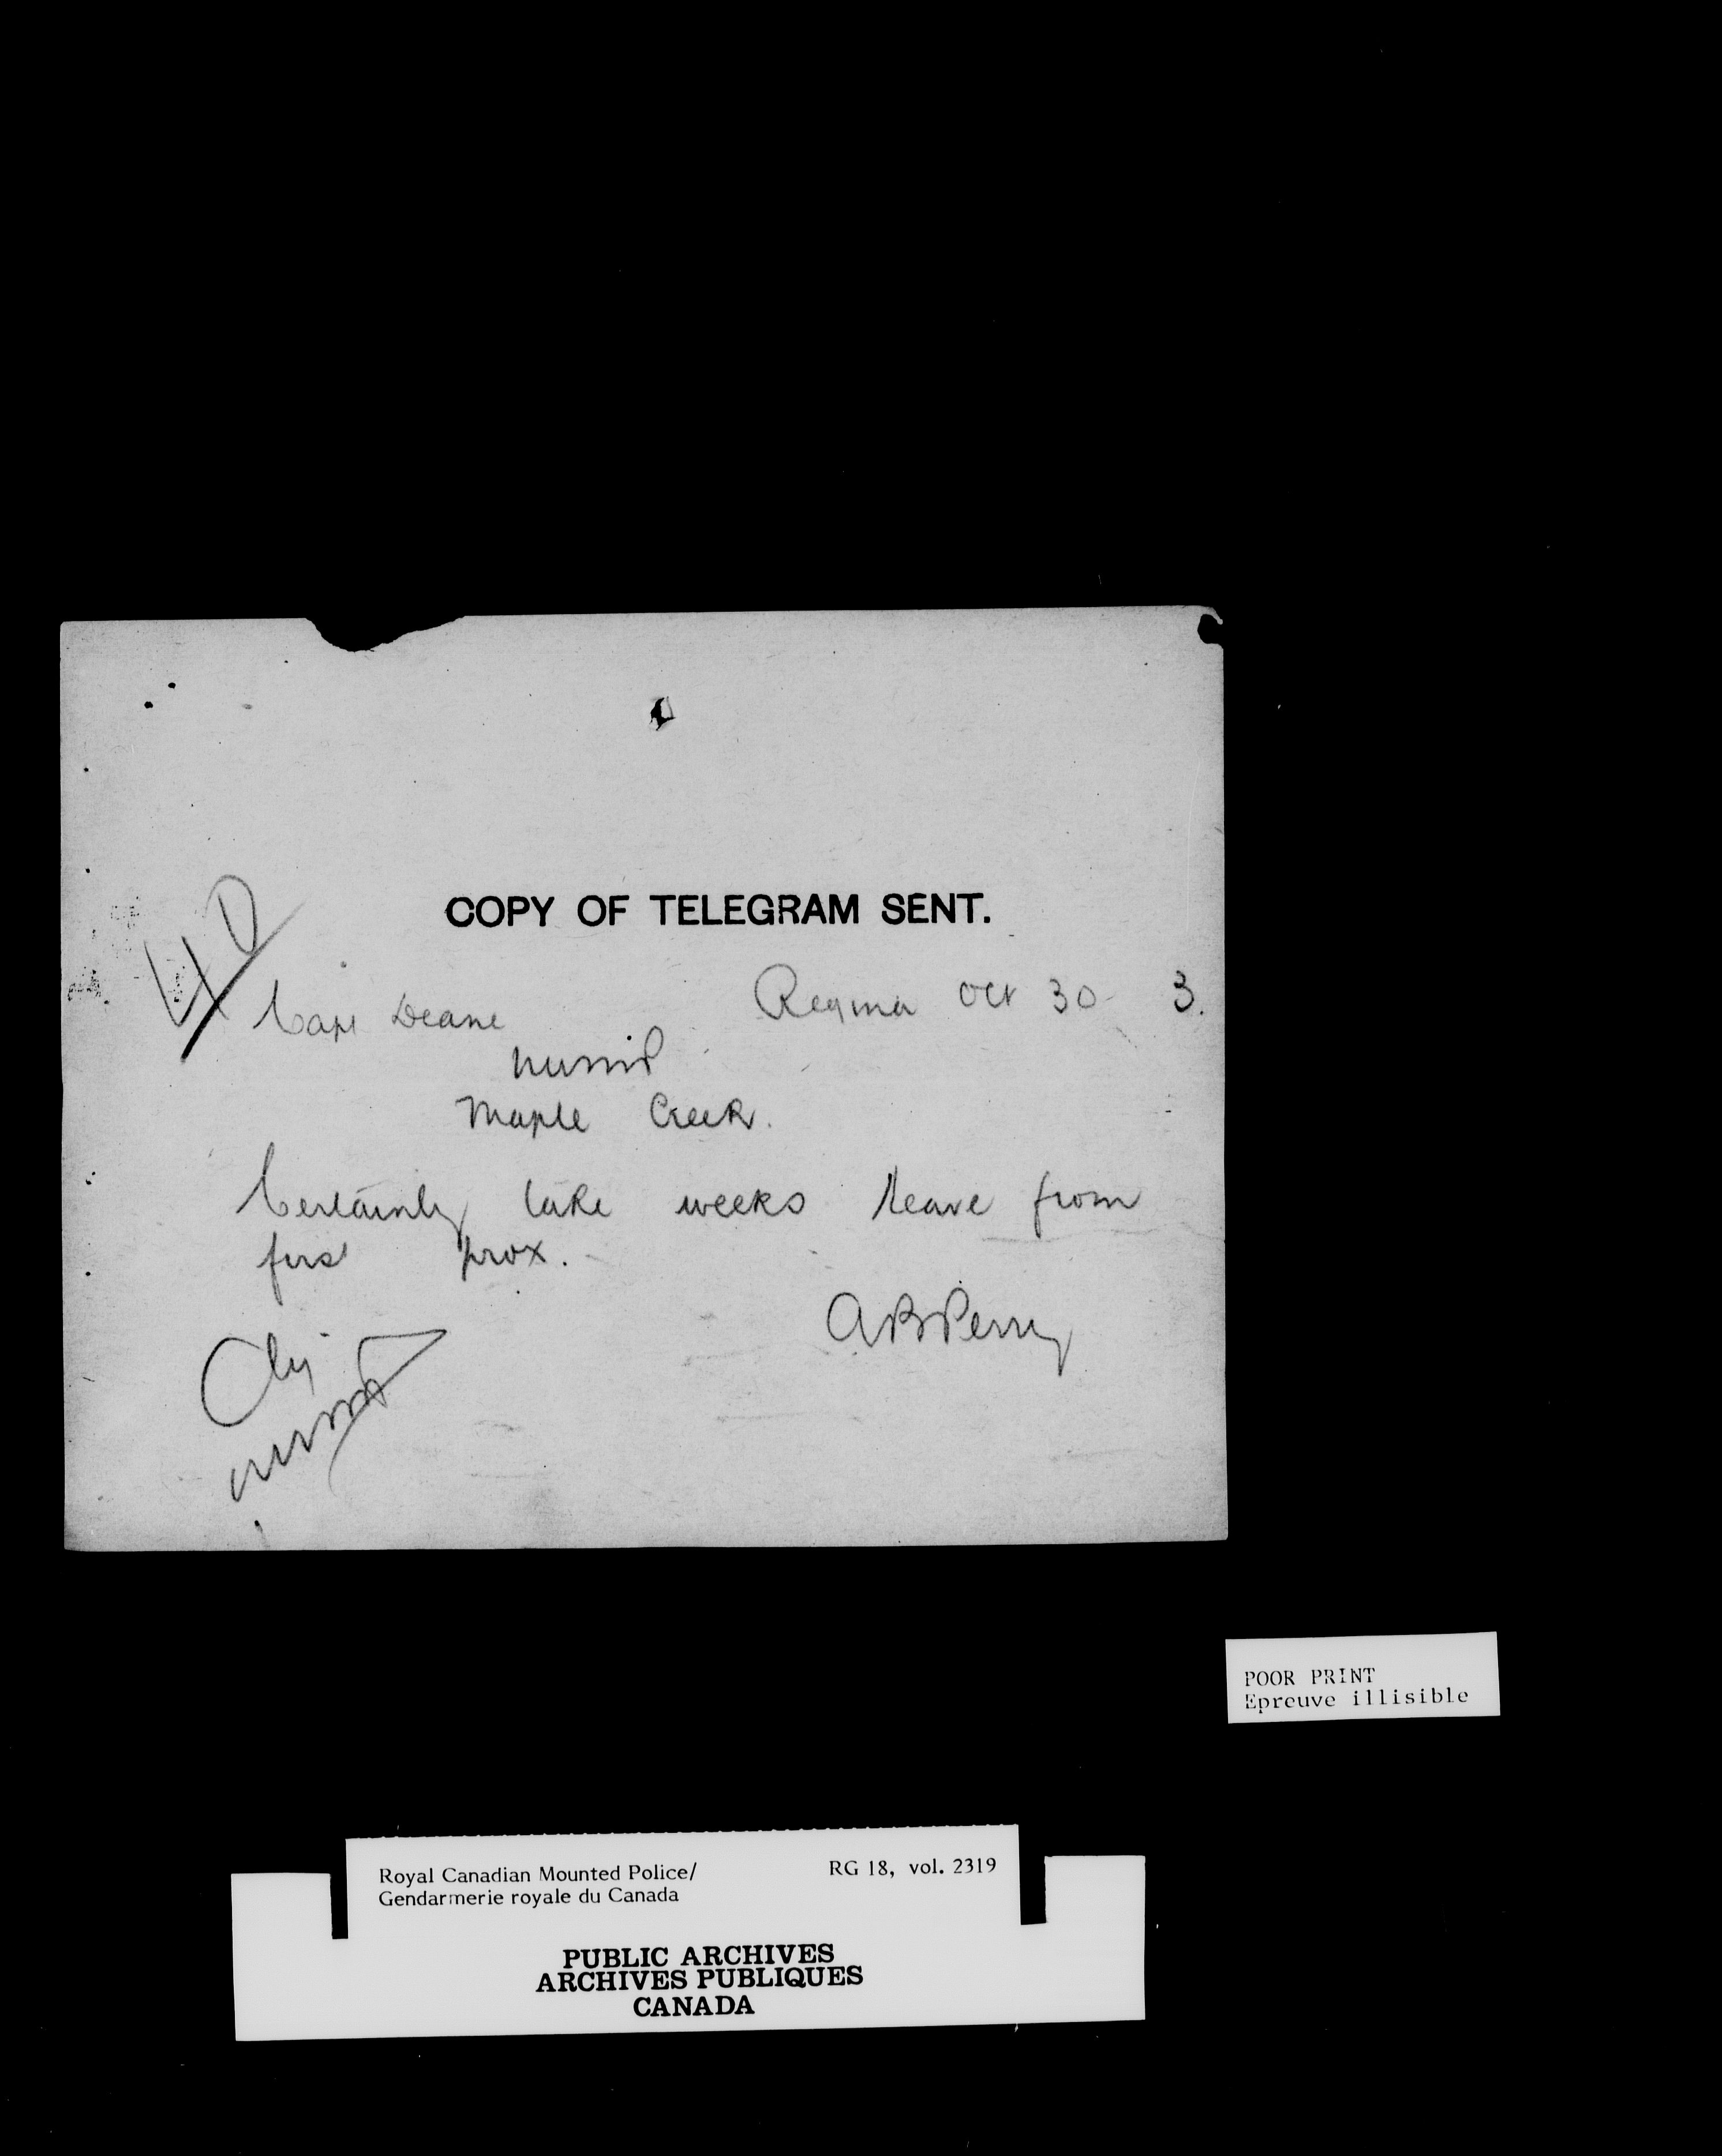 COPY OF TELEGRAM SENT.
40
Regina Oct 30 3.
Capt Deane
NWMP
Maple Creek.
Certainly take weeks leave from
first prox.
A B Perry
NWMP
POOR PRINT
Epreuve illisible
Royal Canadian Mounted Police/
Gendarmerie royale du Canada
RG 18, vol. 2319
PUBLIC ARCHIVES
ARCHIVES PUBLIQUES
CANADA